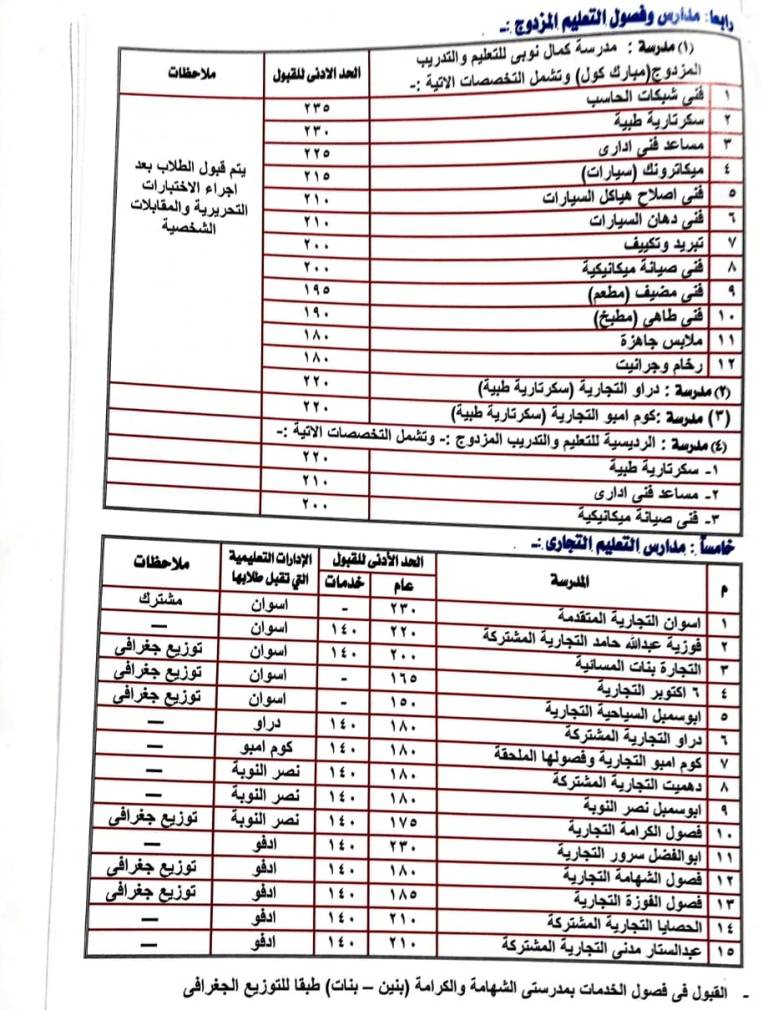 رابعا: مدارس وفصول التعليم المزدوج :-
(١) مدرسة : مدرسة كمال نوبى للتعليم والتدريب المزدوج(مبارك كول) وتشمل التخصصات الاتية :- الحد الادنى للقبول ملاحظات
١ فنى شبكات الحاسب ٢٣٥
٢ سكرتارية طبية ٢٣٠
٣ مساعد فنى ادارى ٢٢٥
٤ ميكاترونك (سيارات) ٢١٥
٥ فنى اصلاح هياكل السيارات ٢١٠
٦ فنى دهان السيارات ٢١٠
٧ تبريد وتكييف ٢٠٠
٨ فنى صيانة ميكانيكية ٢٠٠
٩ فنى مضيف (مطعم) ١٩٥
١٠ فنى طاهى (مطبخ) ١٩٠
١١ ملابس جاهزة ١٨٠
١٢ رخام وجرانيت ١٨٠
يتم قبول الطلاب بعد
اجراء الاختبارات
التحريرية والمقابلات
الشخصية
(٢) مدرسة : دراو التجارية (سكرتارية طبية) ٢٢٠
(٣) مدرسة :كوم امبو التجارية (سكرتارية طبية) ٢٢٠
(٤) مدرسة : الرديسية للتعليم والتدريب المزدوج :- وتشمل التخصصات الاتية :-
١- سكرتارية طبية ٢٢٠
٢- مساعد فنى ادارى ٢١٠
٣- فنى صيانة ميكانيكية ٢٠٠
خامساً : مدارس التعليم التجارى :-
م المدرسة الحد الأدنى للقبول الإدارات التعليمية التي تقبل طلابها ملاحظات
عام خدمات
١ اسوان التجارية المتقدمة ٢٣٠ - اسوان مشترك
٢ فوزية عبدالله حامد التجارية المشتركة ٢٢٠ ١٤٠ اسوان —
٣ التجارة بنات المسائية ٢٠٠ ١٤٠ اسوان توزيع جغرافى
٤ ٦ اكتوبر التجارية ١٦٥ - اسوان توزيع جغرافى
٥ ابوسمبل السياحية التجارية ١٥٠ - اسوان توزيع جغرافى
٦ دراو التجارية المشتركة ١٨٠ ١٤٠ دراو —
٧ كوم امبو التجارية وفصولها الملحقة ١٨٠ ١٤٠ كوم امبو —
٨ دهميت التجارية المشتركة ١٨٠ ١٤٠ نصر النوبة —
٩ ابوسمبل نصر النوبة ١٨٠ ١٤٠ نصر النوبة —
١٠ فصول الكرامة التجارية ١٧٥ ١٤٠ نصر النوبة توزيع جغرافى
١١ ابوالفضل سرور التجارية ٢٣٠ ١٤٠ ادفو —
١٢ فصول الشهامة التجارية ١٨٠ ١٤٠ ادفو توزيع جغرافى
١٣ فصول الفوزة التجارية ١٨٥ ١٤٠ ادفو توزيع جغرافى
١٤ الحصايا التجارية المشتركة ٢١٠ ١٤٠ ادفو —
١٥ عبدالستار مدنى التجارية المشتركة ٢١٠ ١٤٠ ادفو —
- القبول فى فصول الخدمات بمدرستى الشهامة والكرامة (بنين – بنات) طبقا للتوزيع الجغرافى